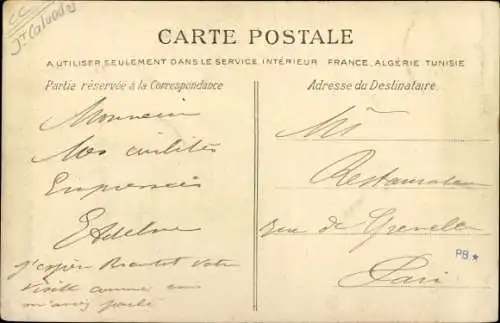 CC
CARTE POSTALE
A UTILISER SEULEMENT DANS LE SERVICE INTÉRIEUR FRANCE, ALGÉRIE TUNISIE
Partie réservée à la Correspondance
Adresse du Destinataire.
Monsieur
Mes civilités
Empressées
J'espère Bientot votre
visite comme
m'avez parlé
Restaurateur
Rue de Grenelle
Paris
PB*